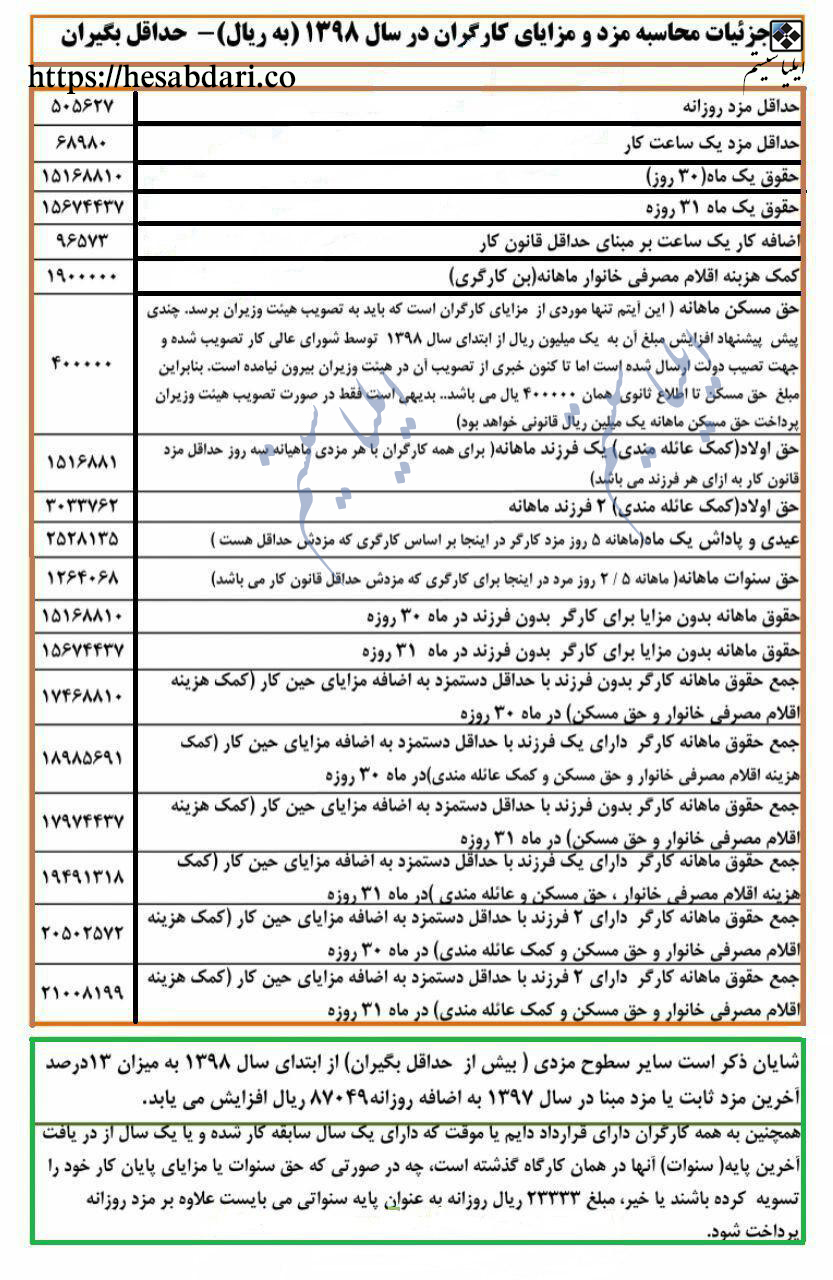 جزئیات محاسبه مزد و مزایای کارگران در سال ۱۳۹۸ (به ریال)– حداقل بگیران
ایلیا سیستم
https://hesabdari.co
حداقل مزد روزانه ۵۰۵۶۲۷
حداقل مزد یک ساعت کار ۶۸۹۸۰
حقوق یک ماه(۳۰ روز) ۱۵۱۶۸۸۱۰
حقوق یک ماه ۳۱ روزه ۱۵۶۷۴۴۳۷
اضافه کار یک ساعت بر مبنای حداقل قانون کار ۹۶۵۷۳
کمک هزینه اقلام مصرفی خانوار ماهانه(بن کارگری) ۱۹۰۰۰۰۰
حق مسکن ماهانه ( این آیتم تنها موردی از مزایای کارگران است که باید به تصویب هیئت وزیران برسد. چندی
پیش پیشنهاد افزایش مبلغ آن به یک میلیون ریال از ابتدای سال ۱۳۹۸ توسط شورای عالی کار تصویب شده و
جهت تصیب دولت ارسال شده است اما تا کنون خبری از تصویب آن در هیئت وزیران بیرون نیامده است. بنابراین
مبلغ حق مسکن تا اطلاع ثانوی همان ۴۰۰۰۰۰ یال می باشد.. بدیهی است فقط در صورت تصویب هیئت وزیران
پرداخت حق مسکن ماهانه یک میلین ریال قانونی خواهد بود)
۴۰۰۰۰۰
حق اولاد(کمک عائله مندی) یک فرزند ماهانه( برای همه کارگران با هر مزدی ماهیانه سه روز حداقل مزد
قانون کار به ازای هر فرزند می باشد)
۱۵۱۶۸۸۱
حق اولاد(کمک عائله مندی) ۲ فرزند ماهانه ۳۰۳۳۷۶۲
عیدی و پاداش یک ماه(ماهانه ۵ روز مزد کارگر در اینجا بر اساس کارگری که مزدش حداقل هست ) ۲۵۲۸۱۳۵
حق سنوات ماهانه( ماهانه ۲/۵ روز مرد در اینجا برای کارگری که مزدش حداقل قانون کار می باشد) ۱۲۶۴۰۶۸
حقوق ماهانه بدون مزایا برای کارگر بدون فرزند در ماه ۳۰ روزه ۱۵۱۶۸۸۱۰
حقوق ماهانه بدون مزایا برای کارگر بدون فرزند در ماه ۳۱ روزه ۱۵۶۷۴۴۳۷
جمع حقوق ماهانه کارگر بدون فرزند با حداقل دستمزد به اضافه مزایای حین کار (کمک هزینه
اقلام مصرفی خانوار و حق مسکن) در ماه ۳۰ روزه
۱۷۴۶۸۸۱۰
جمع حقوق ماهانه کارگر دارای یک فرزند با حداقل دستمزد به اضافه مزایای حین کار (کمک
هزینه اقلام مصرفی خانوار و حق مسکن و کمک عائله مندی)در ماه ۳۰ روزه
۱۸۹۸۵۶۹۱
جمع حقوق ماهانه کارگر بدون فرزند با حداقل دستمزد به اضافه مزایای حین کار (کمک هزینه
اقلام مصرفی خانوار و حق مسکن) در ماه ۳۱ روزه
۱۷۹۷۴۴۳۷
جمع حقوق ماهانه کارگر دارای یک فرزند با حداقل دستمزد به اضافه مزایای حین کار (کمک
هزینه اقلام مصرفی خانوار ، حق مسکن و عائله مندی )در ماه ۳۱ روزه
۱۹۴۹۱۳۱۸
جمع حقوق ماهانه کارگر دارای ۲ فرزند با حداقل دستمزد به اضافه مزایای حین کار (کمک هزینه
اقلام مصرفی خانوار و حق مسکن و کمک عائله مندی) در ماه ۳۰ روزه
۲۰۵۰۲۵۷۲
جمع حقوق ماهانه کارگر دارای ۲ فرزند با حداقل دستمزد به اضافه مزایای حین کار (کمک هزینه
اقلام مصرفی خانوار و حق مسکن و کمک عائله مندی) در ماه ۳۱ روزه
۲۱۰۰۸۱۹۹
شایان ذکر است سایر سطوح مزدی ( بیش از حداقل بگیران) از ابتدای سال ۱۳۹۸ به میزان ۱۳درصد
آخرین مزد ثابت یا مزد مبنا در سال ۱۳۹۷ به اضافه روزانه۸۷۰۴۹ ریال افزایش می یابد.
همچنین به همه کارگران دارای قرارداد دایم یا موقت که دارای یک سال سابقه کار شده و یا یک سال از در یافت
آخرین پایه( سنوات) آنها در همان کارگاه گذشته است، چه در صورتی که حق سنوات یا مزایای پایان کار خود را
تسویه کرده باشند یا خیر، مبلغ ۲۳۳۳۳ ریال روزانه به عنوان پایه سنواتی می بایست علاوه بر مزد روزانه
پرداخت شود.
ایلیا سیستم
ایلیا سیستم